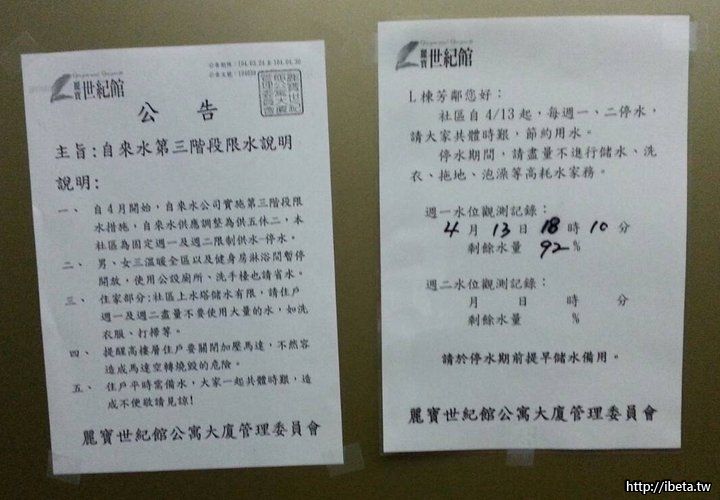 麗寶 世紀館
公告期間：104.03.24 至 104.04.30
公 告
主旨：自來水第三階段限水說明
說明：
一、 自4月開始，自來水公司實施第三階段限
水措施，自來水供應調整為供五休二，本
社區為固定週一及週二限制供水-停水。
二、 男、女三溫暖全區以及健身房淋浴間暫停
開放，使用公設廁所、洗手檯也請省水。
三、 住家部分：社區上水塔儲水有限，請住戶
週一及週二盡量不要使用大量的水，如洗
衣服、打掃等。
四、 提醒高樓層住戶要關閉加壓馬達，不然容
造成馬達空轉燒毀的危險。
五、 住戶平時需備水，大家一起共體時艱，造
成不便敬請見諒!
麗寶世紀館公寓大廈管理委員會
麗寶 世紀館
L棟芳鄰您好：
社區自4/13起，每週一、二停水，
請大家共體時艱，節約用水。
停水期間，請盡量不進行儲水、洗
衣、拖地、泡澡等高耗水家務。
週一水位觀測記錄：
4 月 13 日 18 時 10 分
剩餘水量 92 %
週二水位觀測記錄：
月 日 時 分
剩餘水量 %
請於停水期前提早儲水備用。
麗寶世紀館公寓大廈管理委員會
http://ibeta.tw